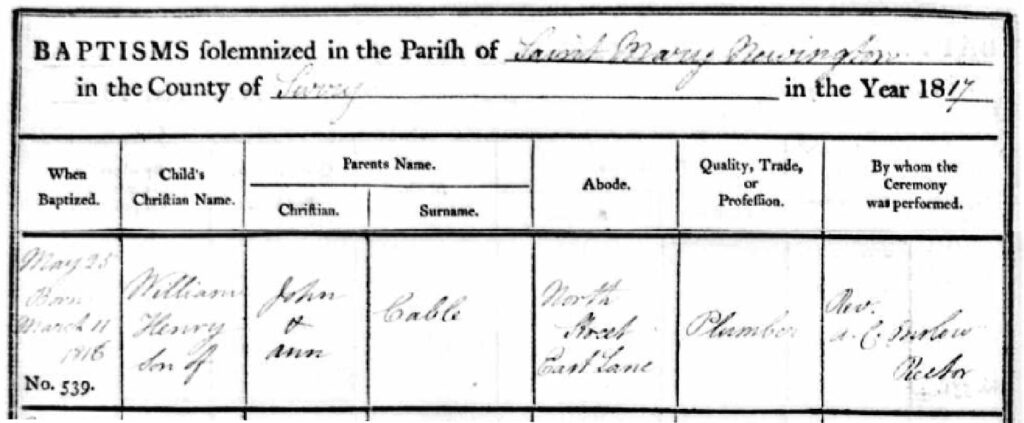 BAPTISMS ſolemnized in the Pariſh of Saint Mary Newington
in the County of Surry in the Year 1817
When
Baptized.
Child's
Chriſtian Name.
Parents Name.
Chriſtian.
Surname.
Abode.
Quality, Trade,
or
Profeſſion.
By whom the
Ceremony
was performed.
May 25
Born
March 11
1816
No. 539.
William
Henry
Son of
John
&
Ann
Cable
North
Street
East Lane
Plumber
Rev.
A. C.
Rector